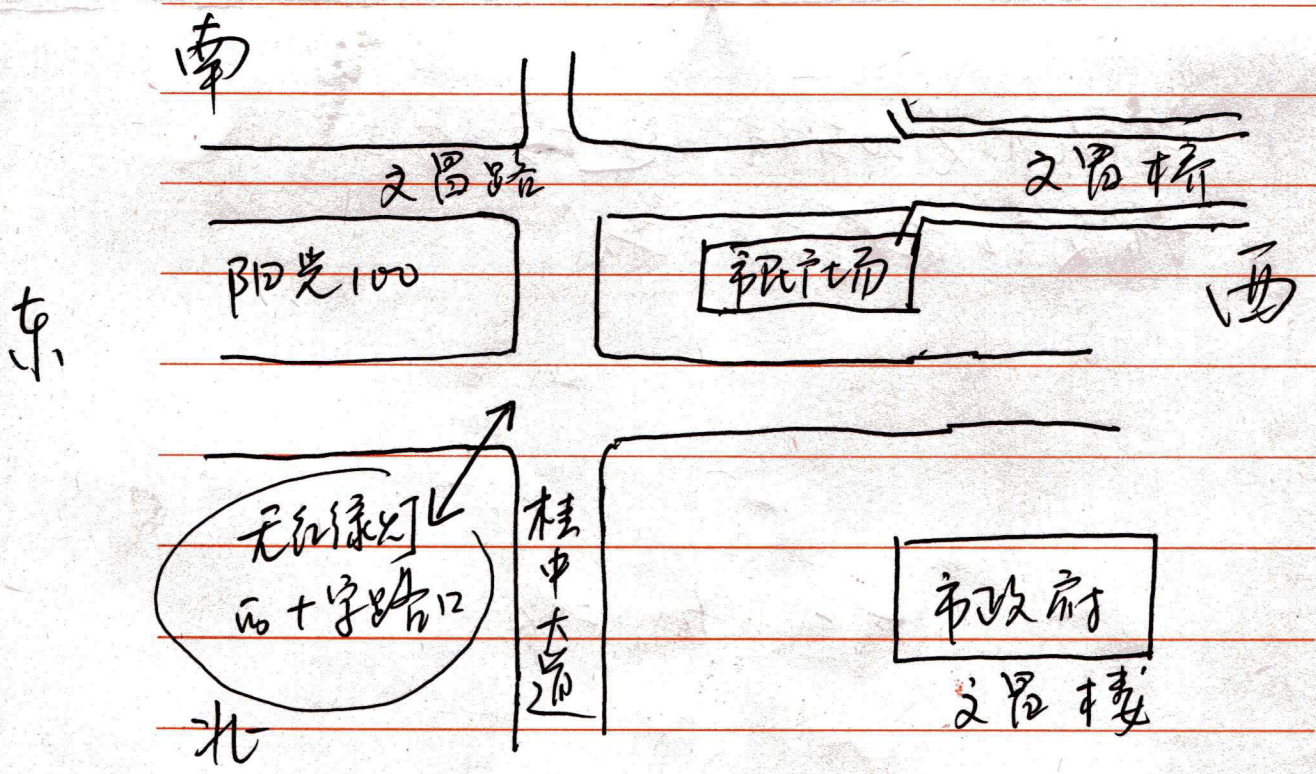 南
文昌路
文昌桥
阳光100
市民广场
西
东
无红绿灯
的十字路口
桂中大道
市政府
文昌楼
北